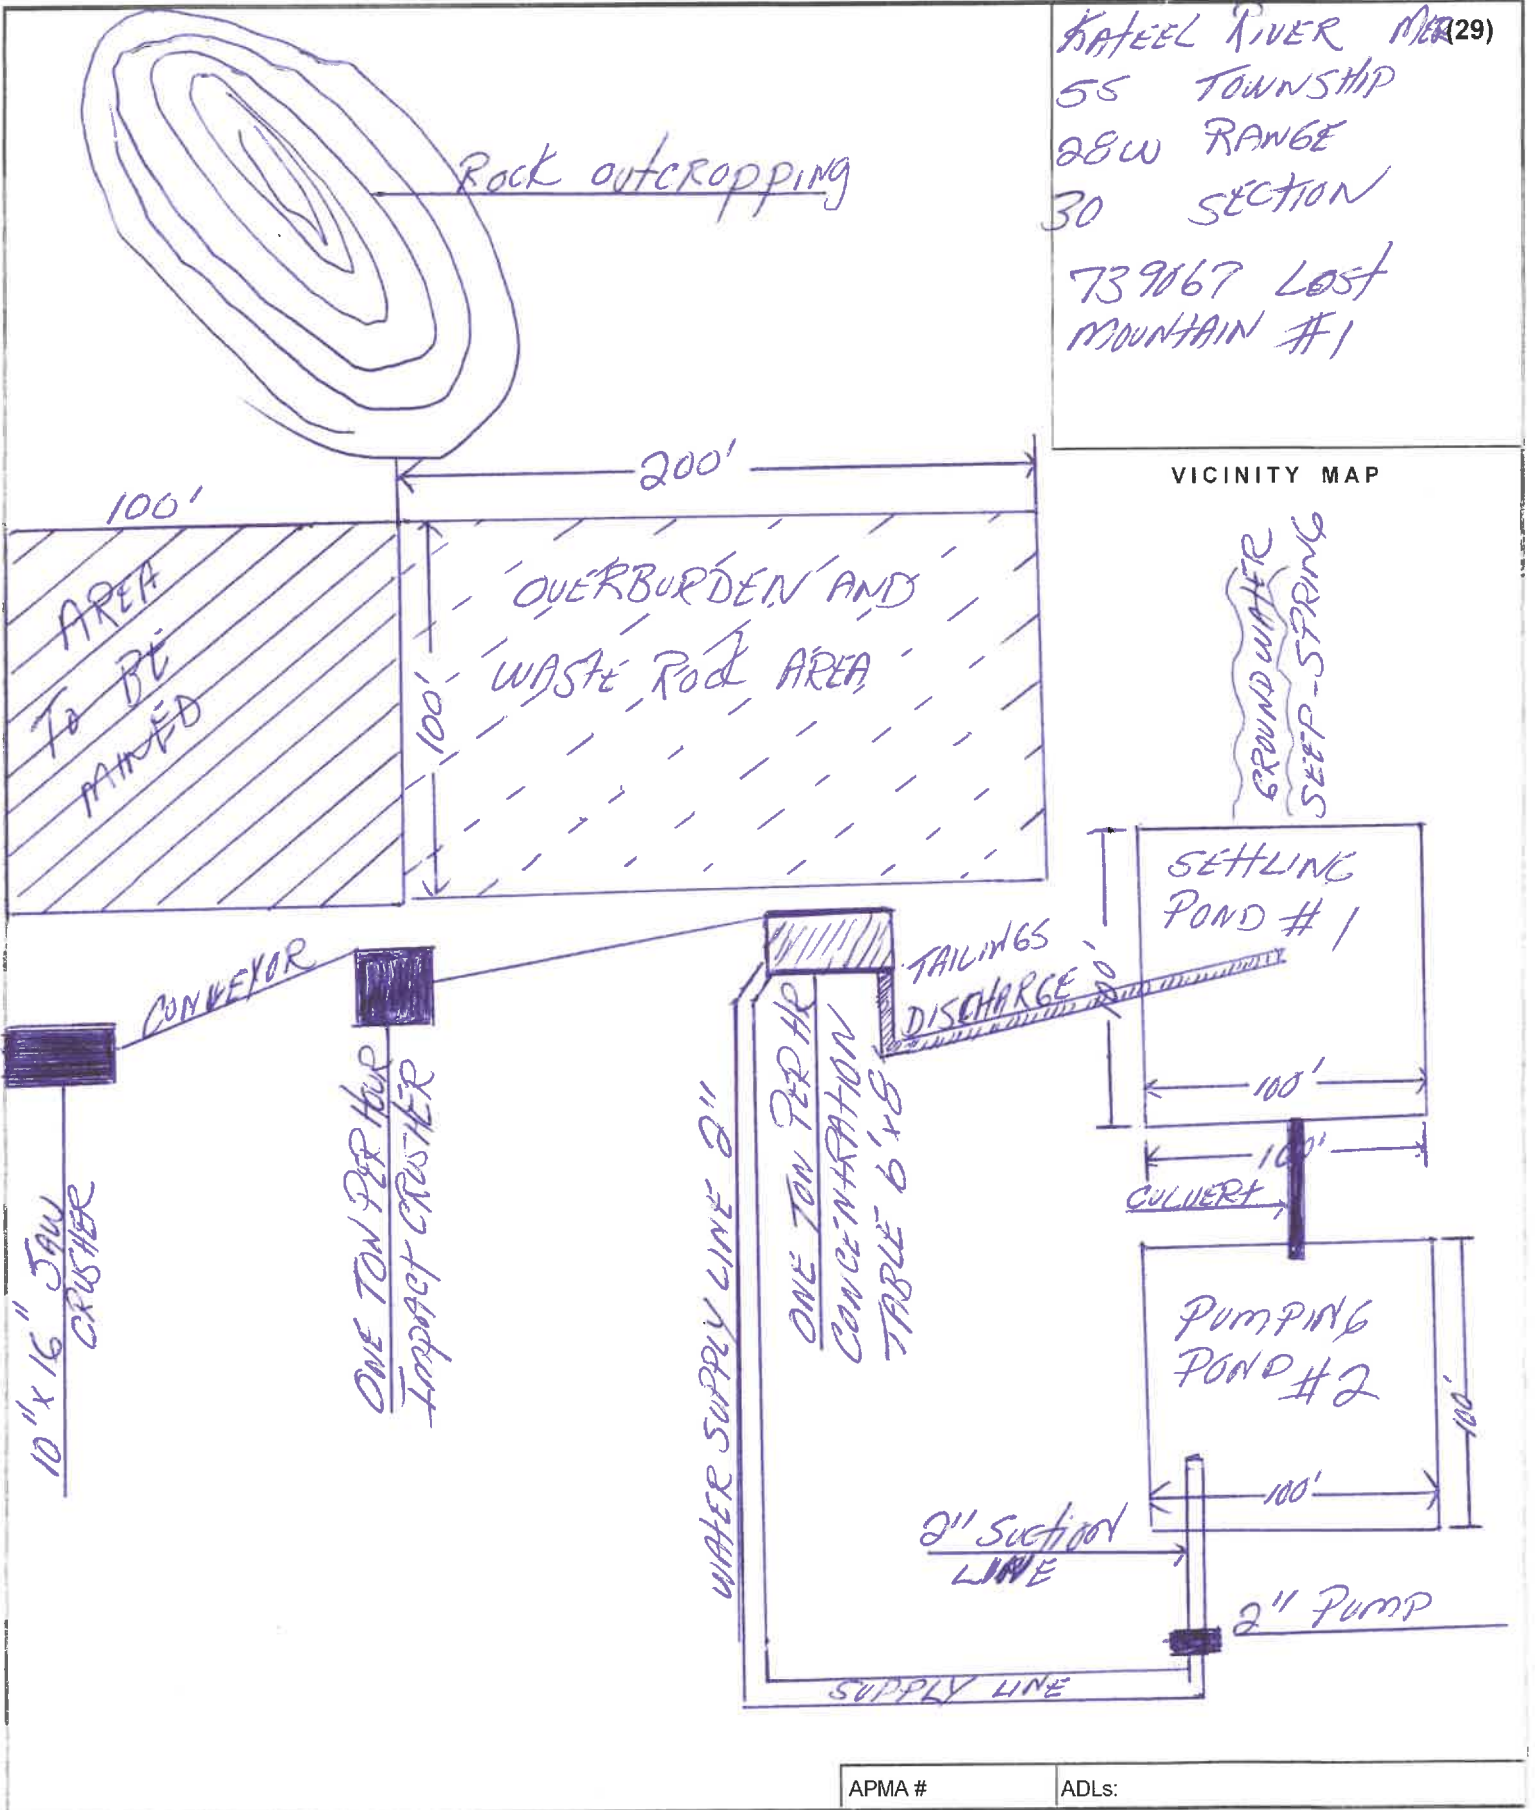 KATEEL RIVER MER (29)
5S TOWNSHIP
28W RANGE
30 SECTION
739067 LOST
MOUNTAIN #1
VICINITY MAP
Rock outcropping
200'
100'
AREA
TO BE
MINED
100'
OVERBURDEN AND
WASTE ROCK AREA
GROUND WATER
SEEP-SPRING
SETTLING
POND #1
100'
100'
100'
TAILINGS
DISCHARGE
CONVEYOR
10" x 16" JAW
CRUSHER
ONE TON PER HOUR
IMPACT CRUSHER
WATER SUPPLY LINE 2"
ONE TON PER HR
CONCENTRATION
TABLE 6'x8
CULVERT
PUMPING
POND #2
100'
100'
2" SUCTION
LINE
2" PUMP
SUPPLY LINE
APMA #
ADLs: